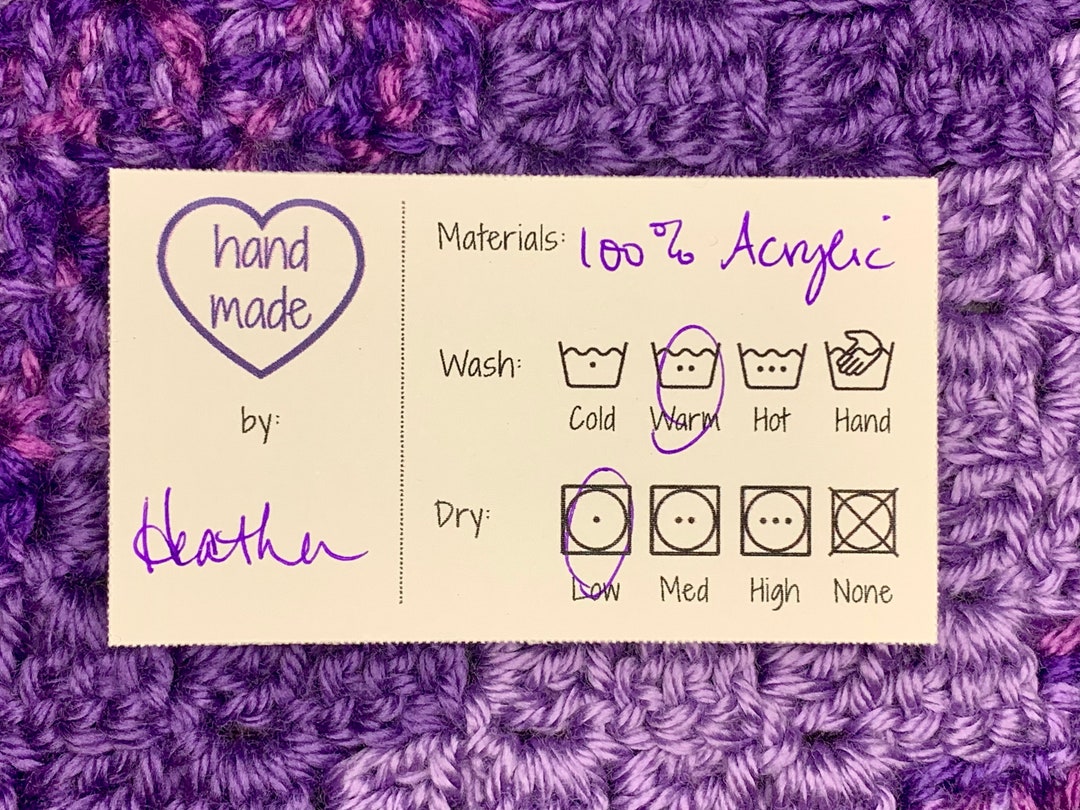 hand
made
by:
Heather
Materials: 100% Acrylic
Wash:
Cold Warm Hot Hand
Dry:
Low Med High None